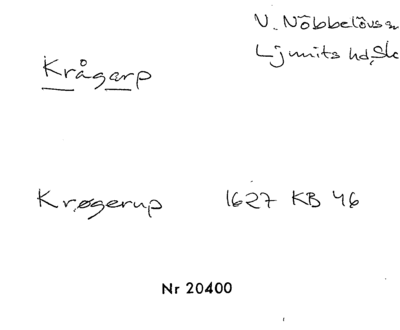 V. Nöbbelövs sn
Ljunits hd, Sk
Krågarp
Krøgerup 1627 KB 46
Nr 20400